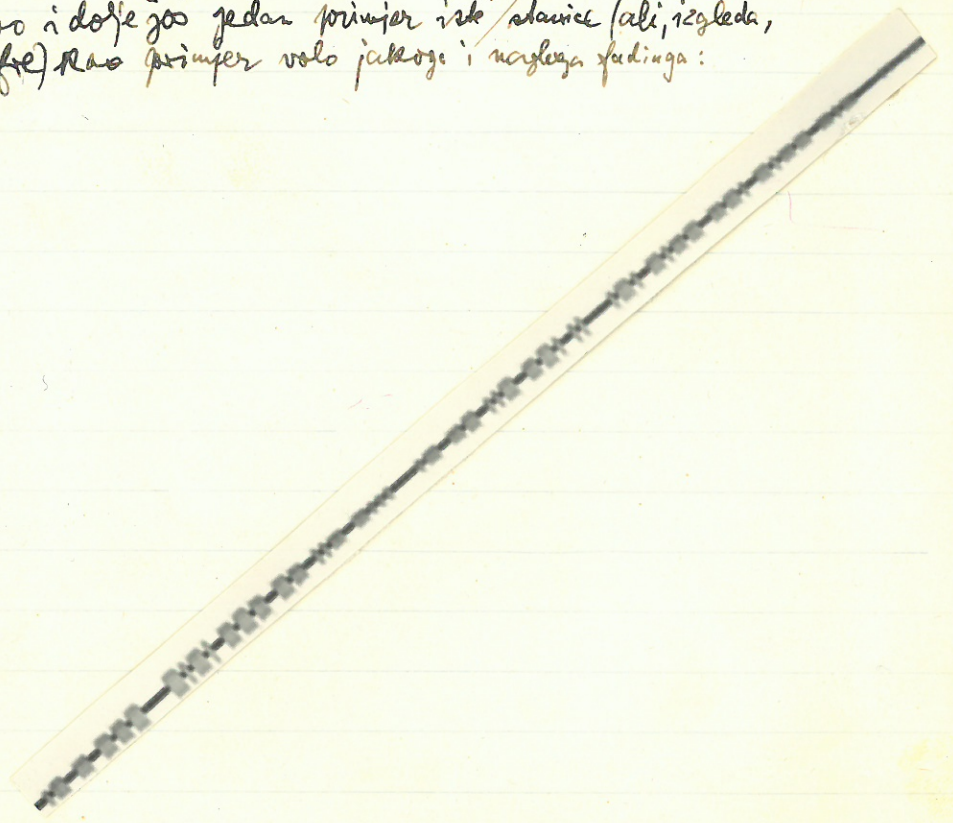 i dolje još jedan primjer iste stanice (ali, izgleda,
kao primjer vrlo jakoga i nagloga fadinga: